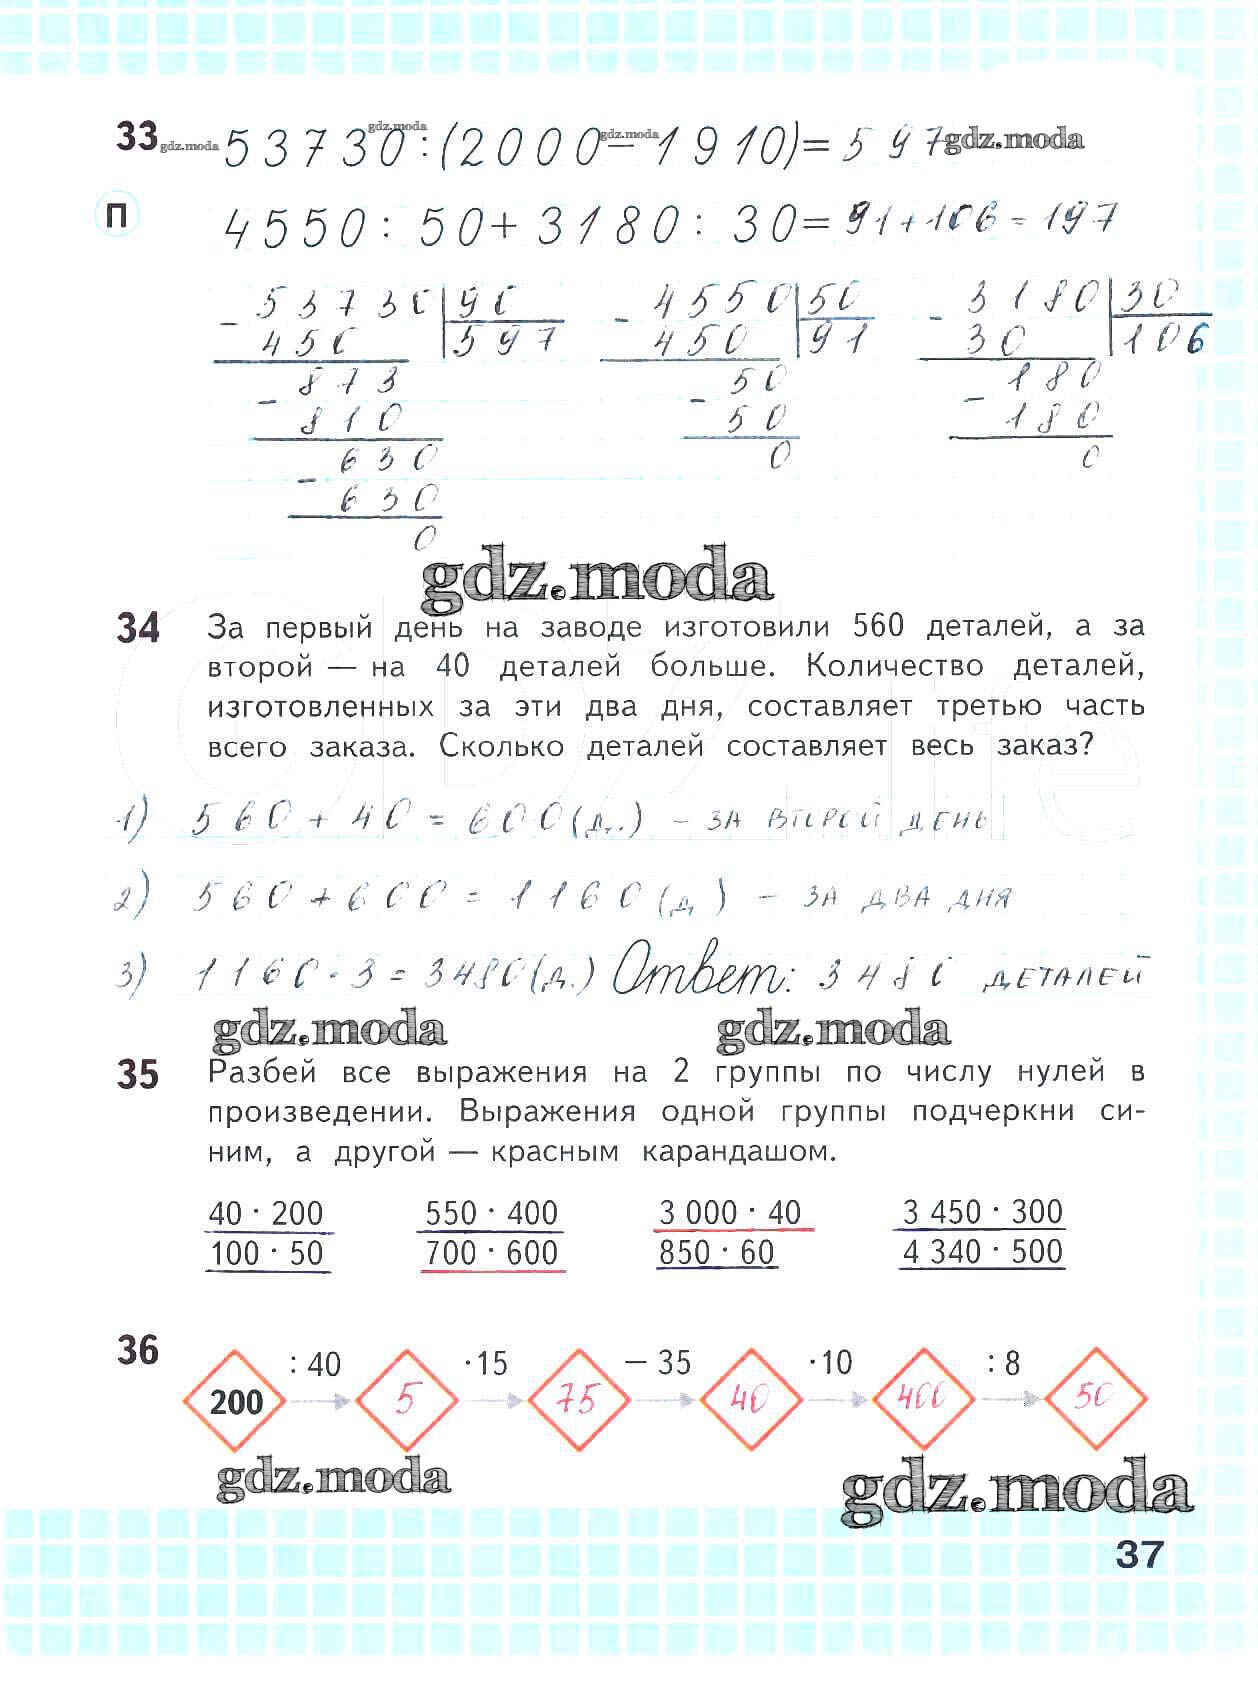 33 gdz.moda 53730 : (2000 – 1910) = 597 gdz.moda
gdz.moda gdz.moda
П 4550 : 50 + 3180 : 30 = 91 + 106 = 197
- 53730 | 90 - 4550 | 50 - 3180 | 30
450 | 597 450 | 91 30 | 106
- 873 - 50 - 180
810 50 180
- 630 0 0
630
0
gdz.moda
34 За первый день на заводе изготовили 560 деталей, а за
второй — на 40 деталей больше. Количество деталей,
изготовленных за эти два дня, составляет третью часть
всего заказа. Сколько деталей составляет весь заказ?
1) 560 + 40 = 600 (д.) – ЗА ВТОРОЙ ДЕНЬ
2) 560 + 600 = 1160 (д) – ЗА ДВА ДНЯ
3) 1160 · 3 = 3480 (д.) Ответ: 3480 ДЕТАЛЕЙ
gdz.moda gdz.moda
35 Разбей все выражения на 2 группы по числу нулей в
произведении. Выражения одной группы подчеркни си-
ним, а другой — красным карандашом.
40 · 200 550 · 400 3 000 · 40 3 450 · 300
100 · 50 700 · 600 850 · 60 4 340 · 500
36 : 40 ·15 – 35 ·10 : 8
200 5 75 40 400 50
gdz.moda gdz.moda
37